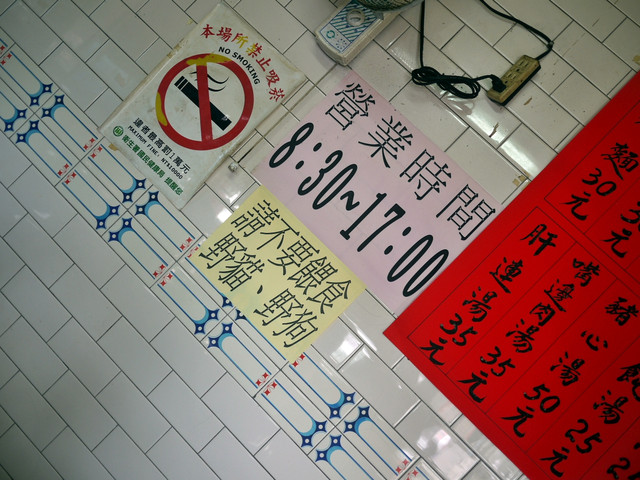 本場所禁止吸菸
NO SMOKING
違者最高罰1萬元
MAX FINE: NT$10000
營業時間
8:30~17:00
請不要餵食
野貓、野狗
麵30元
30元
肝連湯35元
嘴邊肉湯35元
豬心湯50元
湯25元